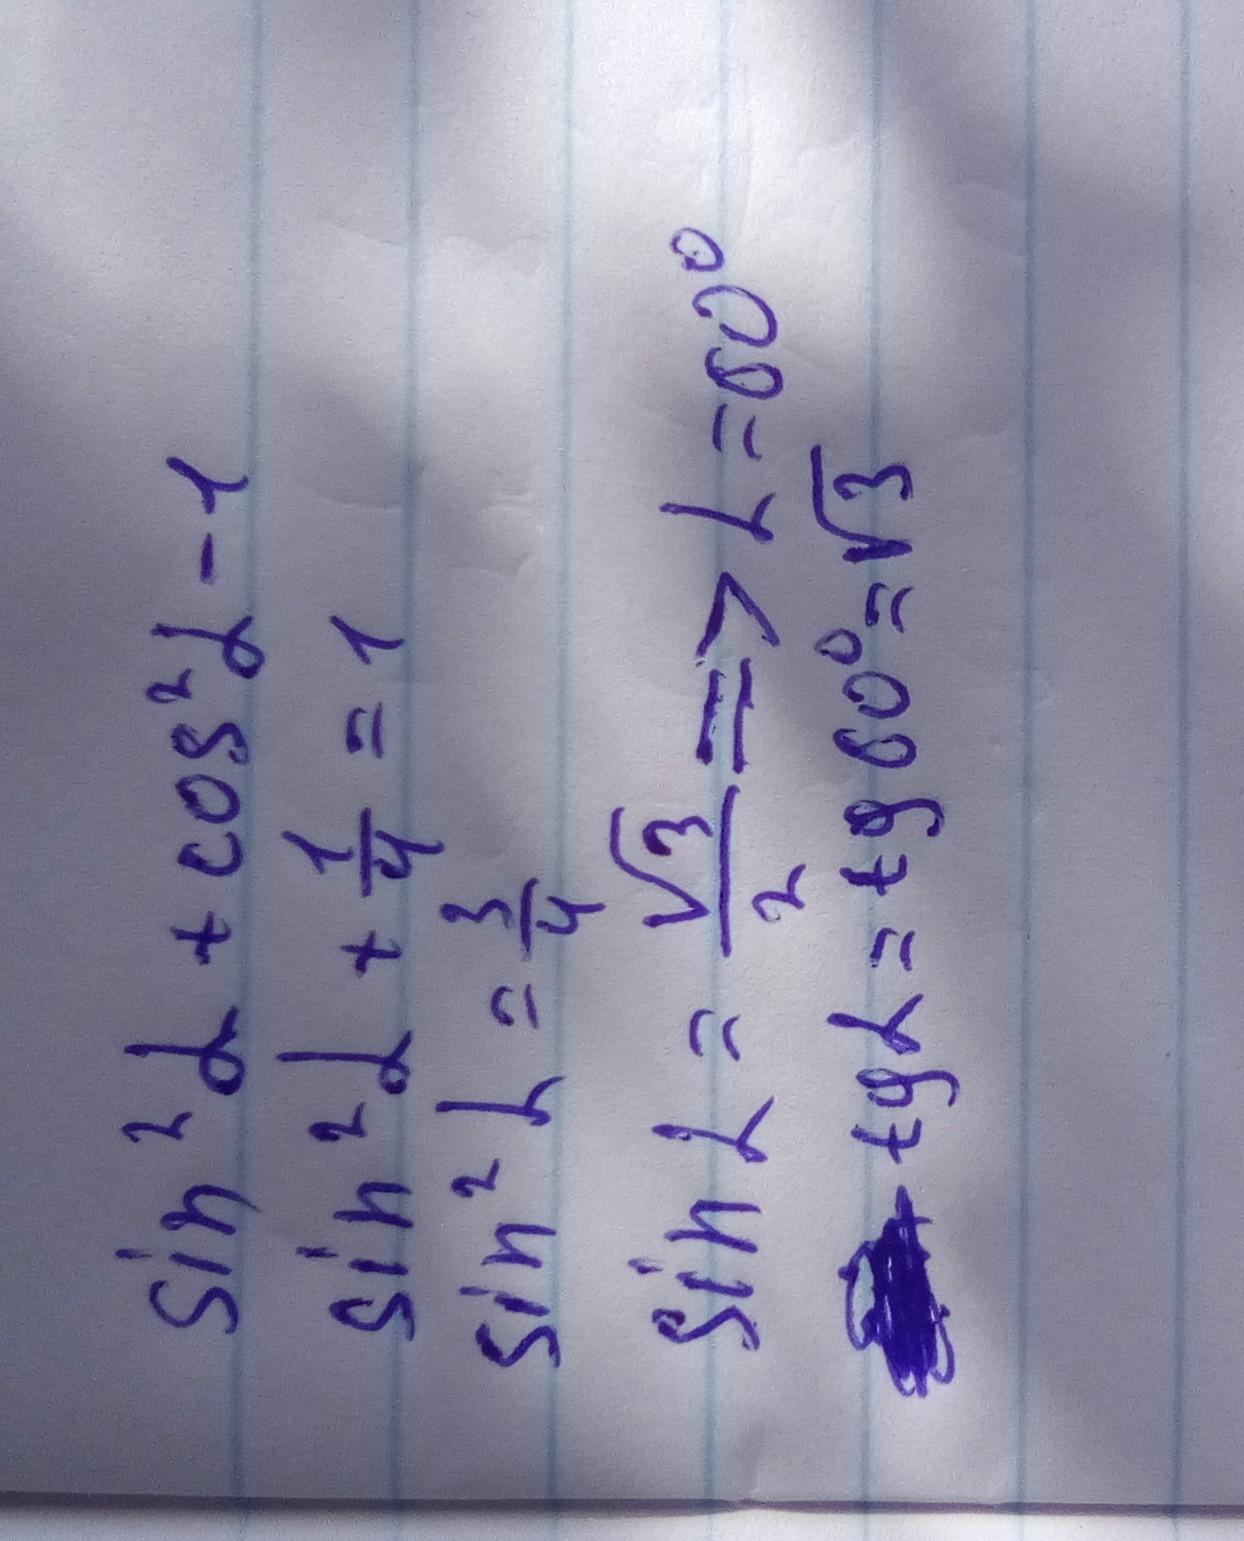 sin²α + cos²α - 1
sin²α + 1/4 = 1
sin²α = 3/4
sin α = √3/2 => α = 60°
tgα = tg60° = √3